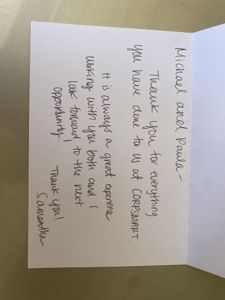 Michael and Paula-
Thank you for everything
you have done to us at CORPSMART.
It is always a great experience
working with you both and I
look forward to the next
opportunity!
Thank you!
Samantha